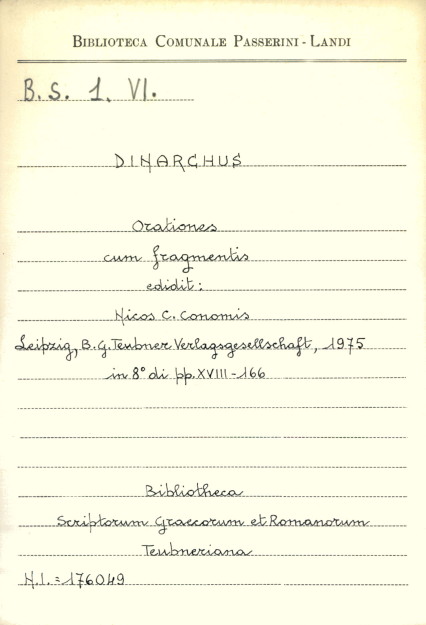 BIBLIOTECA COMUNALE PASSERINI - LANDI
B. S. 1. VI.
DINARCHUS
Orationes
cum fragmentis
edidit:
Nicos C. Conomis
Leipzig, B.G. Teubner Verlagsgesellschaft, 1975
in 8° di pp. XVIII - 166
Bibliotheca
Scriptorum Graecorum et Romanorum
Teubneriana
N.I. = 176049